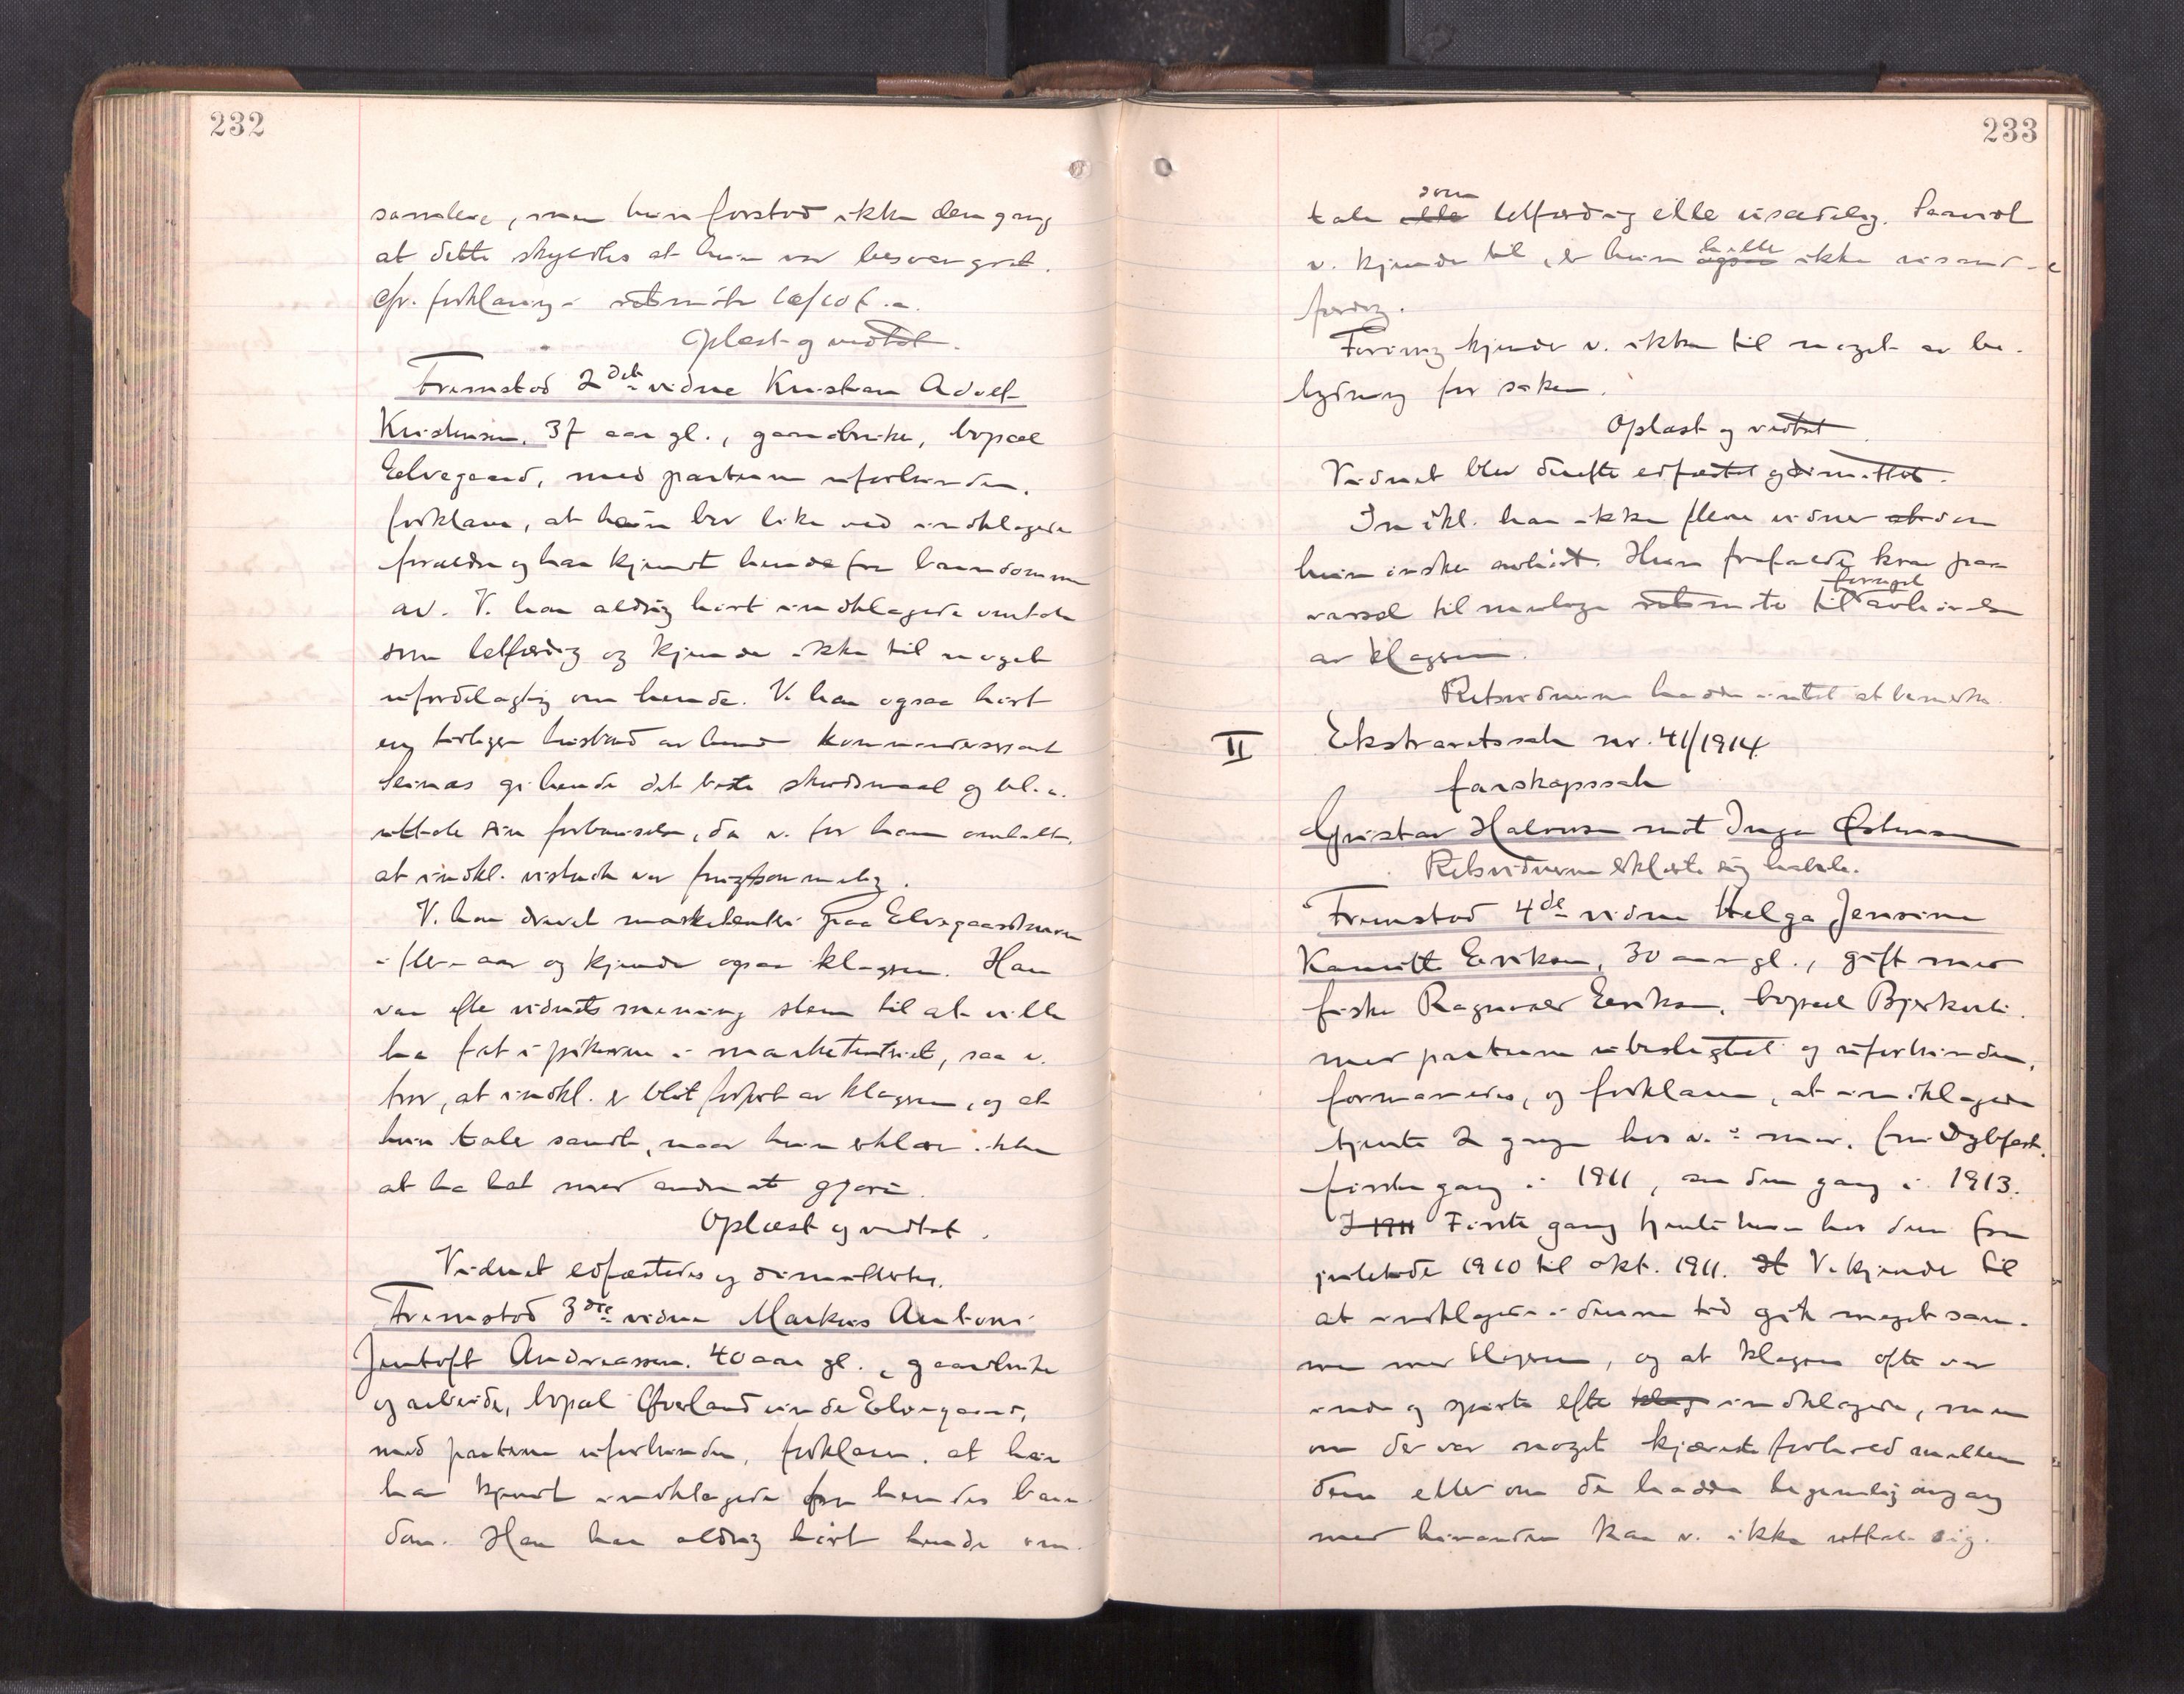 232
samleie, men hun forstod ikke dengang
at dette skyldtes at hun var besvangret.
cfr. forklaring i retsmøte
Oplæst og vedtat.
Fremstod 2det vidne Kristian Adolf
Kristensen, 37 aar gl., gaardbruker, bopæl
Elvegaard, med parterne uforhindre.
forklarer, at han bor like ved indklagede
forældre og har kjendt hende fra barndommen
av. V. har aldrig hørt indklagede omtale
som letfærdig og kjender ikke til noget
ufordelagtig om hende. V. har ogsaa hørt
en tidligere husbond av hende kommandersergeant
gi hende det beste skudsmaal og bl.a.
uttale sin forbauselse, da v. for ham omtalte,
at indkl. visstnok var frugtsommelig.
V. har drevet marketenteri paa Elvegaardsmoen
i flere aar og kjender ogsaa klageren. Han
var efter vidnets mening slem til at ville
ha fat i pikerne i marketenteriet, saa v.
tror, at indkl. er blit forført av klageren, og at
hun taler sandt, naar hun erklærer ikke
at ha hat med andre at gjøre.
Oplæst og vedtat.
Vidnet edfæstedes og dimittertes.
Fremstod 3die vidne Markus Antoni
Jentoft Andreassen. 40 aar gl., gaardbruker
og arbeider, bopæl Øverland under Elvegaard,
med parterne uforhindre, forklarer, at han
har kjendt indklagede fra hendes barn-
dom. Han har aldrig hørt hende om-
233
tale eller som letfærdig eller usædelig. Saavidt
v. kjender til, er hun ogsaa heller ikke usand-
færdig.
Forøvrig kjender v. ikke til noget av be-
tydning for saken.
Oplæst og vedtat.
Vidnet blev derefter edfæstet og dimittert.
Indkl. har ikke flere vidner at som
hun ønsker avhørt. Hun frafaldt krav paa
varsel til mulige retsmøte til fornyet avhørelse
av klageren.
Retsvidnerne hadde intet at bemerke.
II
Ekstraretssak nr. 41/1914.
farskapssak
Gustav Halvorsen mot Inga Østensen
Retsvidnerne erklærte sig habile.
Fremstod 4de vidne Helga Jensine
Eriksen, 30 aar gl., gift med
fisker Ragnvald Eriksen, bopæl Bjerkvik.
med parterne ubeslegtet og uforhindre,
formanedes, og forklarer, at indklagede
tjente 2 ganger hos v.'s mor, fru Dybfest.
første gang i 1911, anden gang i 1913.
I 1911 Første gang tjente hun hos dem fra
juletider 1910 til okt. 1911. V. kjender til
at indklagede i denne tid gik meget sam-
men med klageren, og at klageren ofte var
inde og spurte efter klag indklagede, men
om der var noget kjæresteforhold mellem
dem eller om de hadde legemlig omgang
med hinanden kan v. ikke uttale sig.